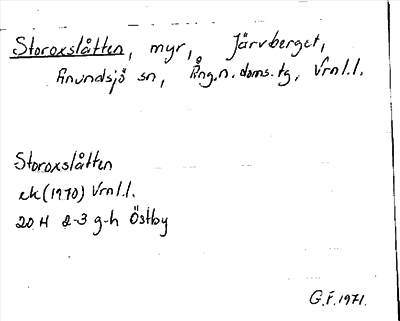 Storoxslåtten, myr, Järvberget,
Anundsjö sn, Ång.n.doms.tg, Vrnl.l.
Storoxslåtten
ek (1970) Vrnl.l.
20 H 2-3 g-h Östby
G.F. 1971.